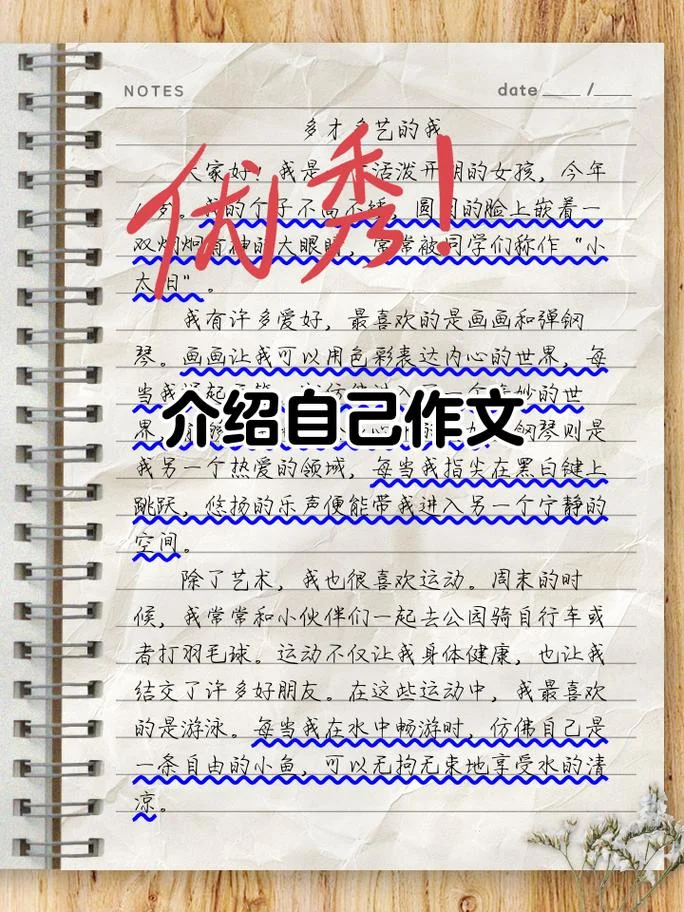 NOTES
date ____ /____
多才多艺的我
优秀!
大家好！我是 活泼开朗的女孩，今年
岁。我的个子不高不矮，圆圆的脸上嵌着一
双炯炯有神的大眼睛，常常被同学们称作“小
太阳”。
我有许多爱好，最喜欢的是画画和弹钢
琴。画画让我可以用色彩表达内心的世界，每
当我 妙的世
介绍自己作文
界， 钢琴则是
我另一个热爱的领域，每当我指尖在黑白键上
跳跃，悠扬的乐声便能带我进入另一个宁静的
空间。
除了艺术，我也很喜欢运动。周末的时
候，我常常和小伙伴们一起去公园骑自行车或
者打羽毛球。运动不仅让我身体健康，也让我
结交了许多好朋友。在这些运动中，我最喜欢
的是游泳。每当我在水中畅游时，仿佛自己是
一条自由的小鱼，可以无拘无束地享受水的清
凉。